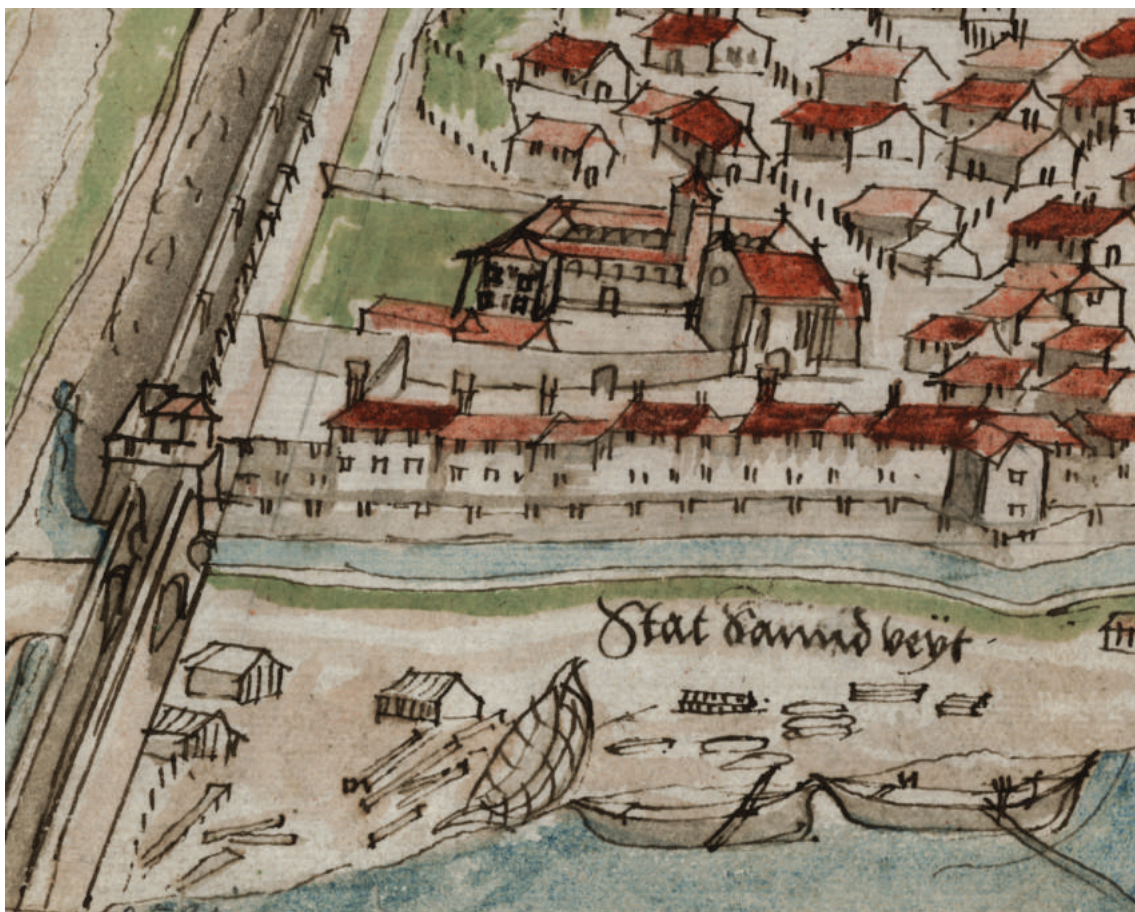 Stat Sannd veÿt